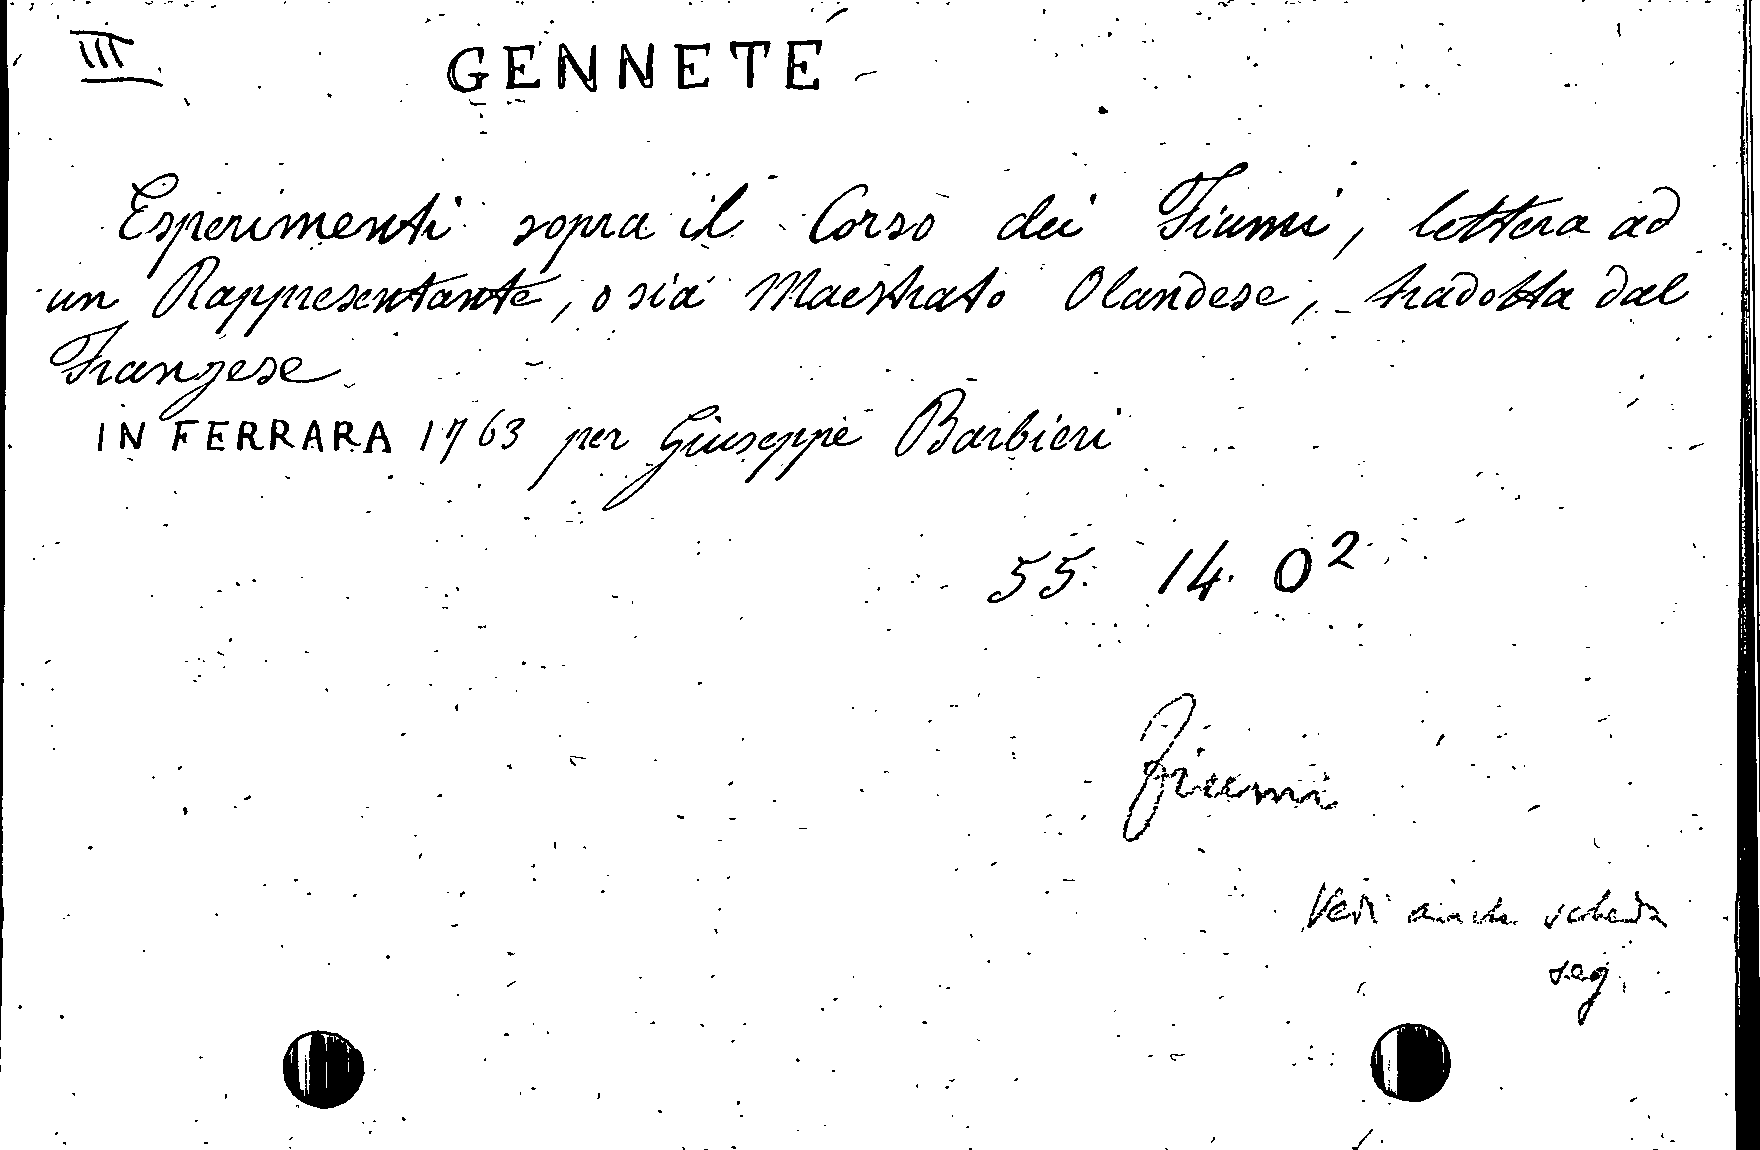 III
GENNETÉ
Esperimenti sopra il Corso dei Fiumi, lettera ad
un Rappresentante, o sia Maestrato Olandese, tradotta dal
Franzese
IN FERRARA 1763 per Giuseppe Barbieri
55. 14. O²
Fiumi
Vedi anche scheda
seg.